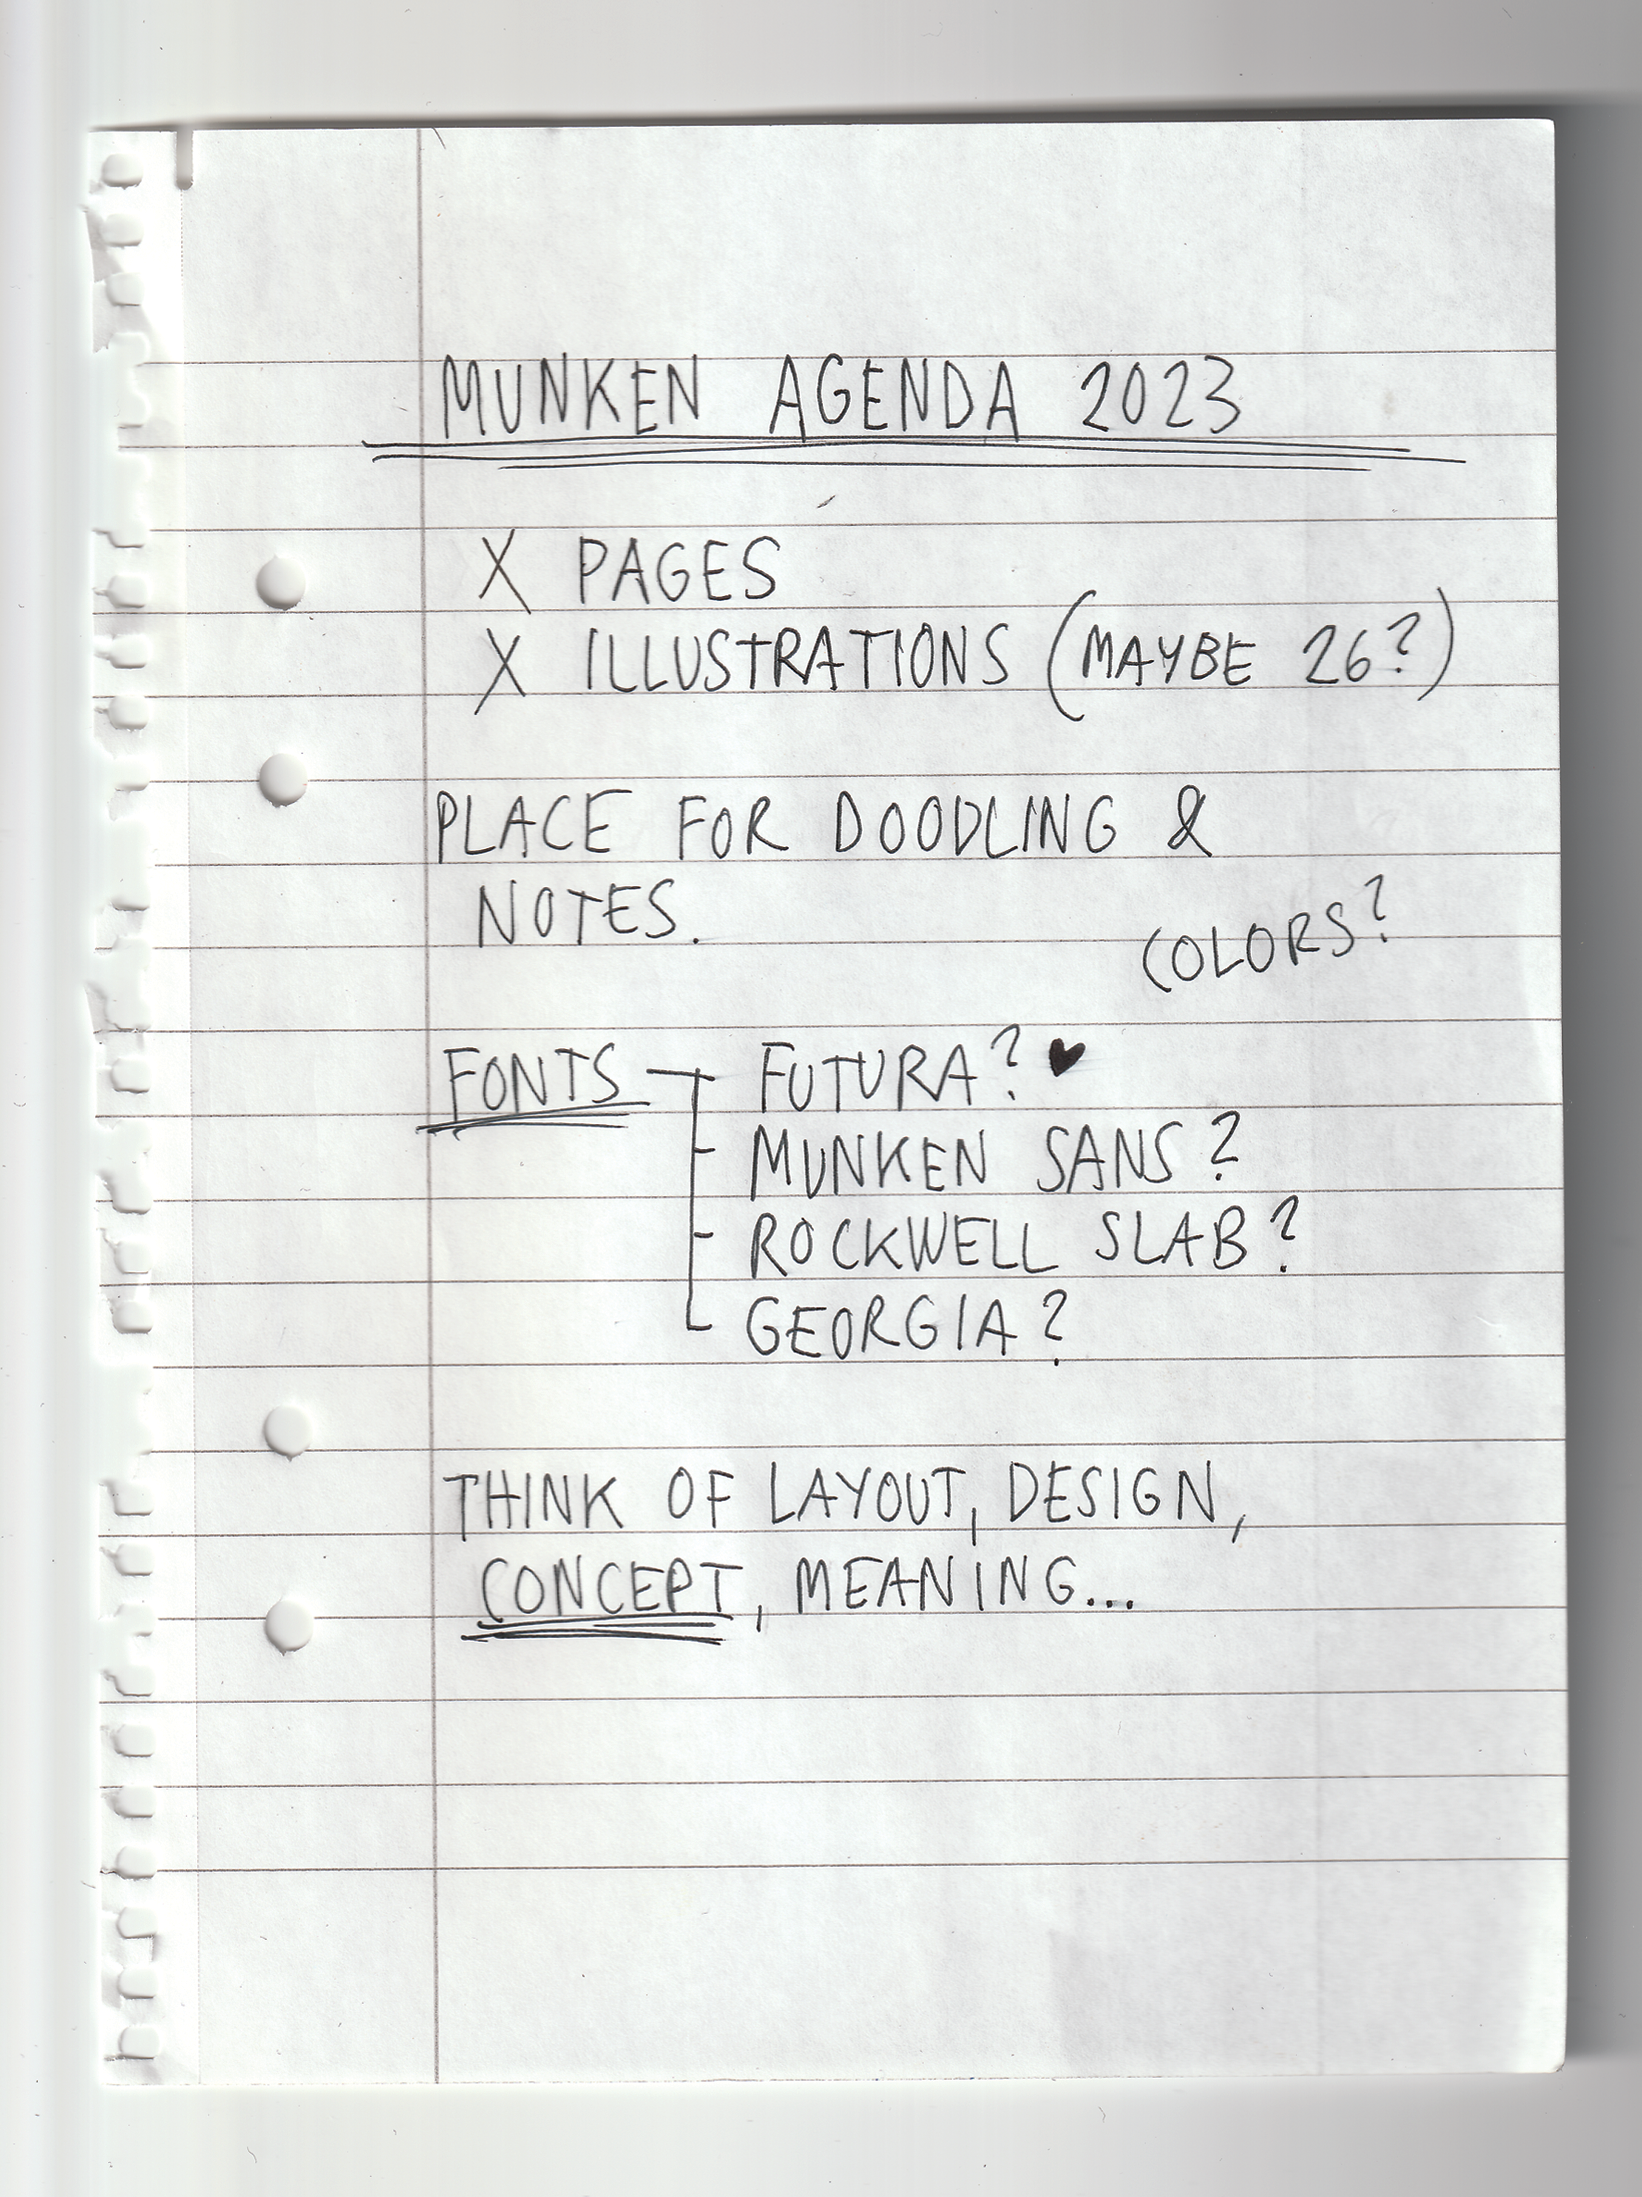 MUNKEN AGENDA 2023
X PAGES
X ILLUSTRATIONS (MAYBE 26?)
PLACE FOR DOODLING &
NOTES.
COLORS?
FONTS - FUTURA? ♥
- MUNKEN SANS?
- ROCKWELL SLAB?
- GEORGIA?
THINK OF LAYOUT, DESIGN,
CONCEPT, MEANING...